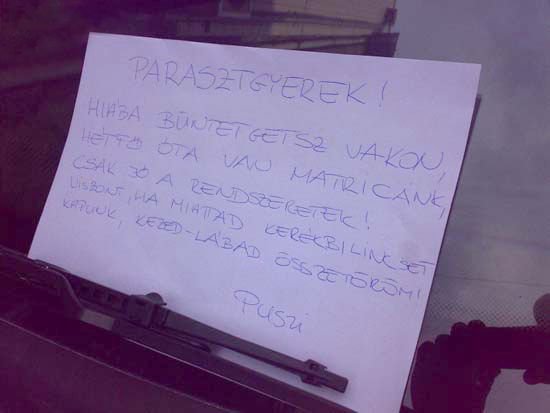 PARASZTGYEREK!
HIABA BÜNTETGETSZ VAKON,
HÉTFŐ ÓTA VAN MATRICÁNK,
CSAK JÓ A RENDSZERETEK!
VISZONT, HA MIATTAD KERÉKBILINCSET
KAPUNK, KEZED-LÁBAD ÖSSZETÖRÖM!
PUSZI